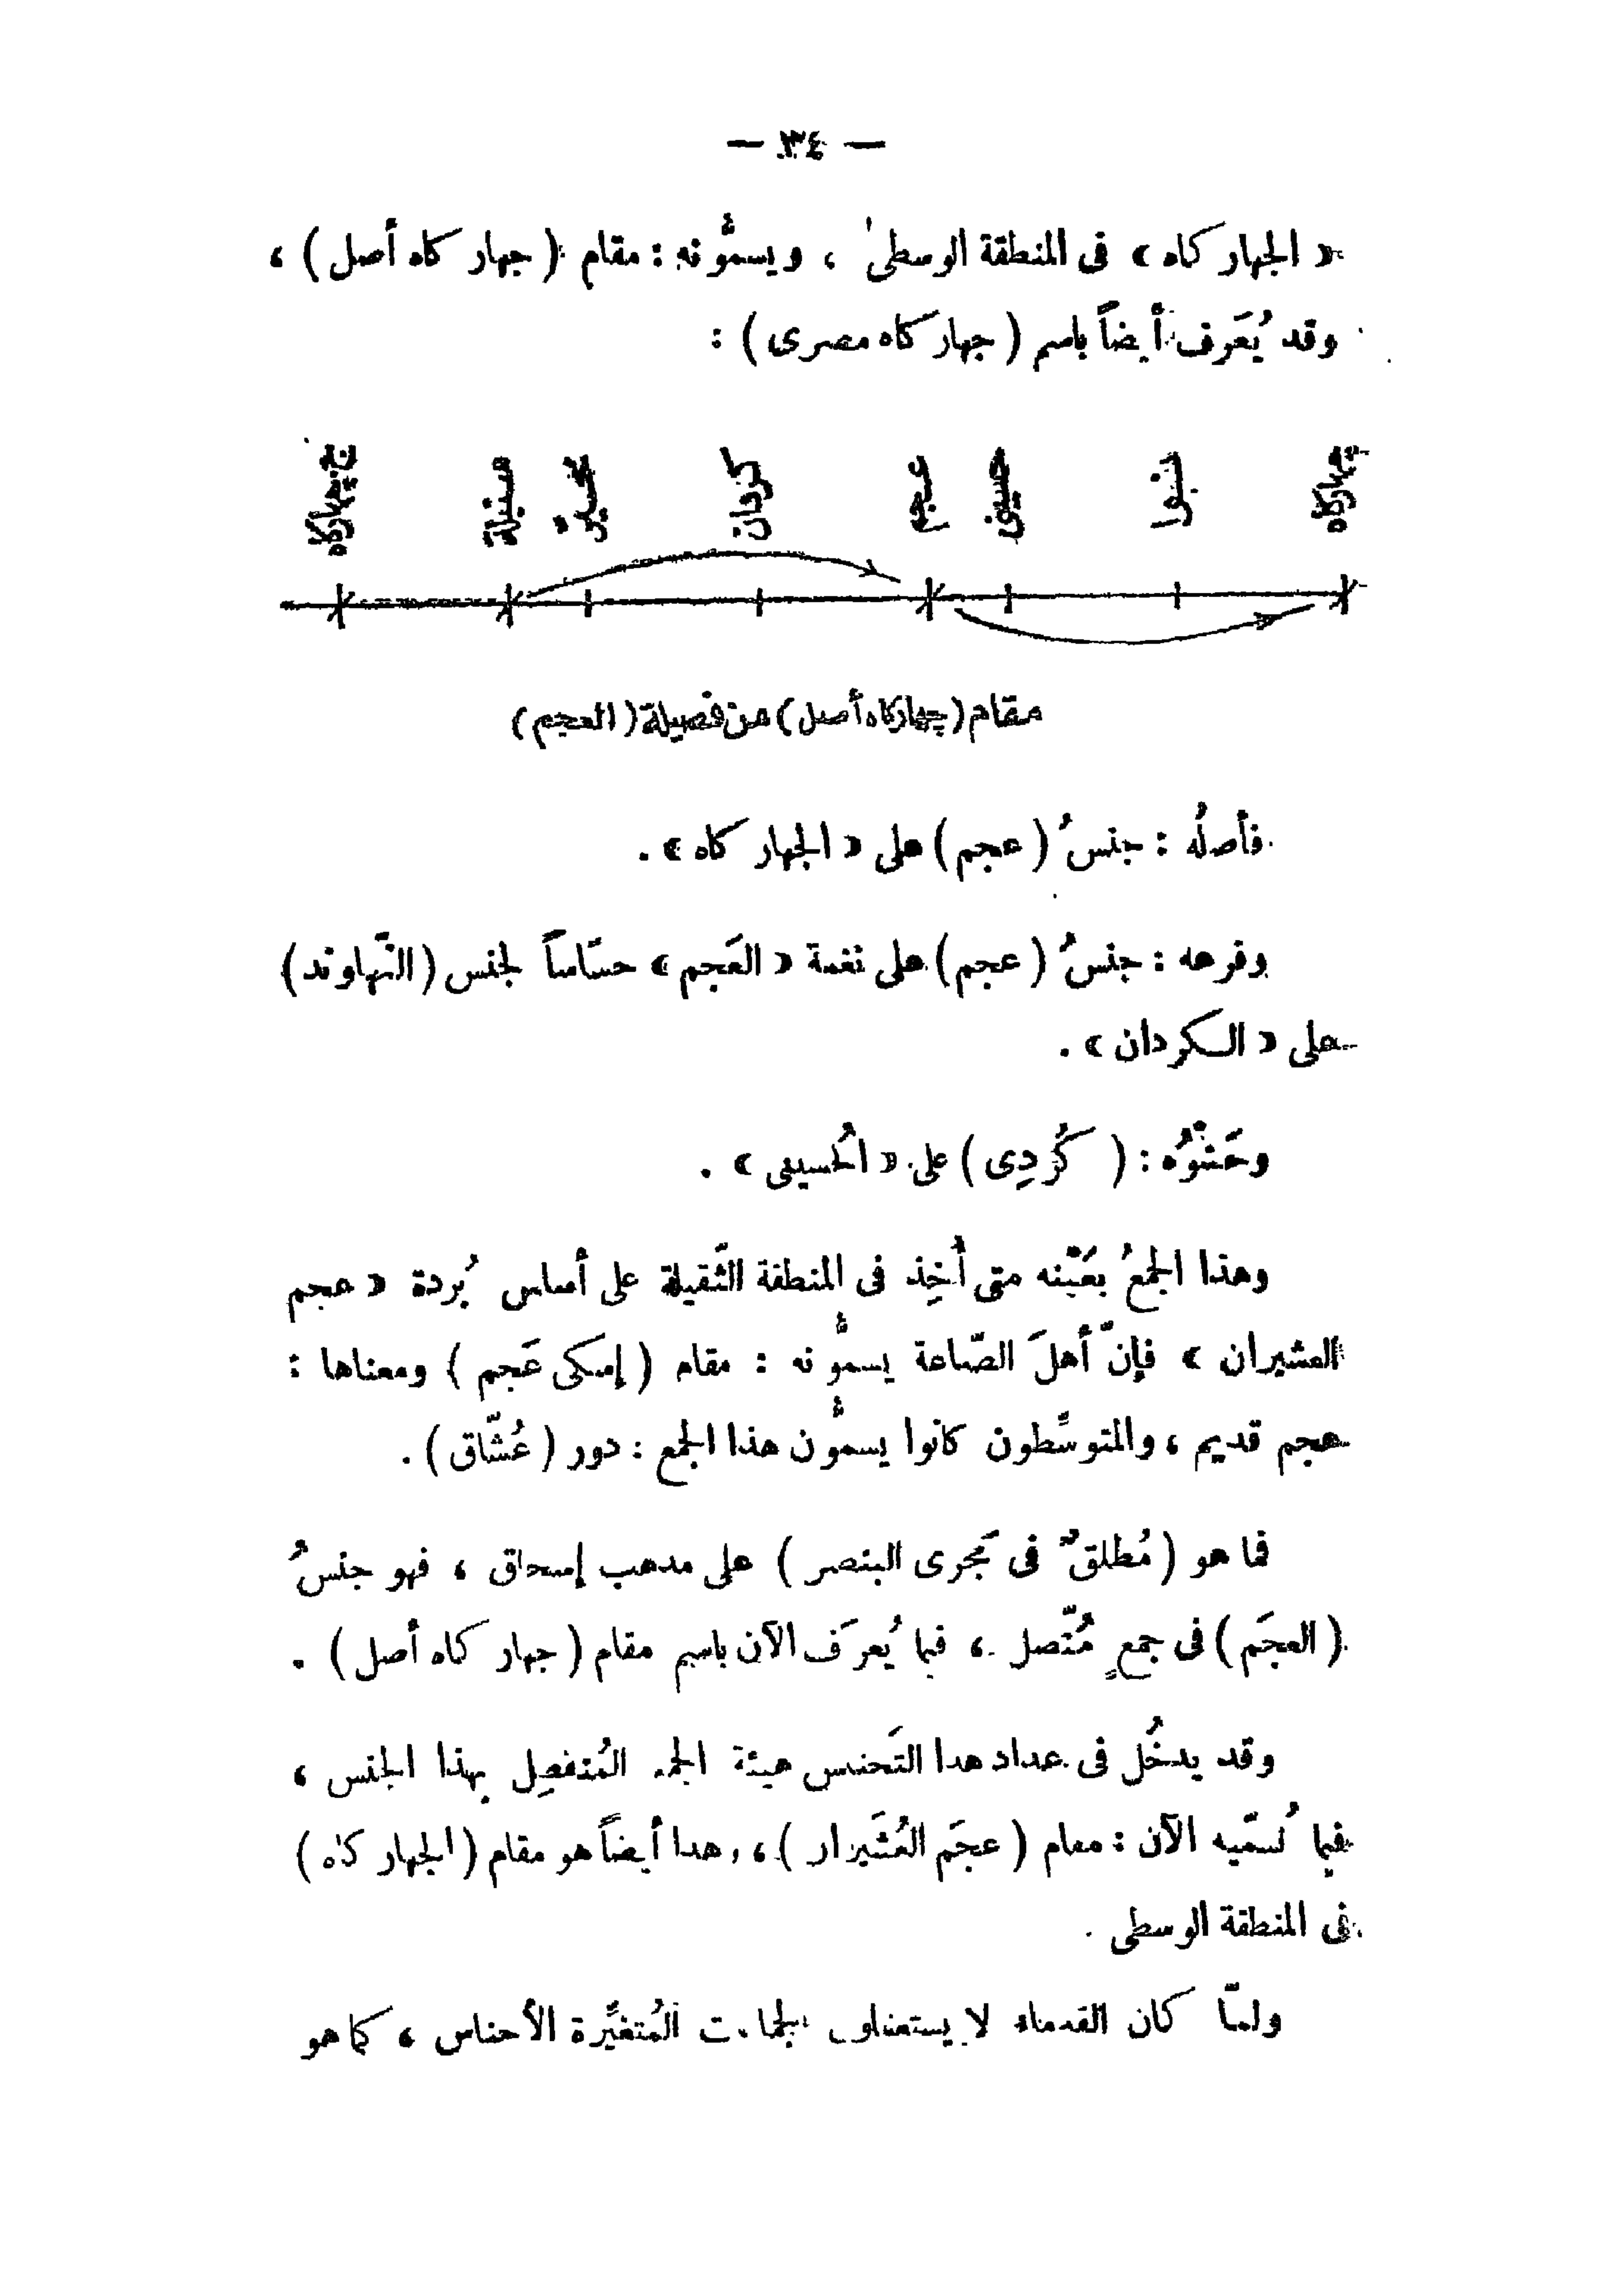 — ٣٤ —
« الجهار كاه » فى المنطقة الوسطىٰ ، ويسمُّونه : مقام ( جهار كاه أصل ) ،
وقد يُعَرف أيضاً باسم ( جهار كاه مصرى ) :
چهاركاه نوا حسينى عجم كردان محير سنبلة ج چهاركاه
مقام ( چهاركاه أصل ) من فصيلة ( العجم )
فأصلُه : جنسُ ( عجم ) على « الجهار كاه » .
وفرعه : جنسُ ( عجم ) على نغمة « العَجم » حسّاساً لجنس ( النّهاوند )
على « الكردان » .
وحَشْوُه : ( كُرْدِى ) على « الحُسينى » .
وهذا الجمعُ بعَيْنه متى أُخِذ فى المنطقة الثّقيلة على أساس بُردة « عجم
العشيران » فإنّ أهلَ الصّناعة يسمُّونه : مقام ( إسكى عَجم ) ومعناها :
عجم قديم ، والمتوسِّطون كانوا يسمُّون هذا الجمع : دور ( عُشّاق ) .
فما هو ( مُطلقٌ فى مَجرى البنصر ) على مذهب إسحاق ، فهو جنسُ
( العجَم ) فى جمعٍ مُتّصل ، فيما يُعرَف الآن باسم مقام ( جهار كاه أصل ) .
وقد يدخُل فى عداد هذا التَجنيس هيئة الجمع المُنفصِل بهذا الجنس ،
فيما نُسمّيه الآن : مقام ( عجَم العُشَيران ) ، وهذا أيضاً هو مقام ( الجهار كاه )
فى المنطقة الوسطى .
ولمّا كان القدماء لا يستعملون الجماعات المُتغيِّرة الأجناس ، كما هو